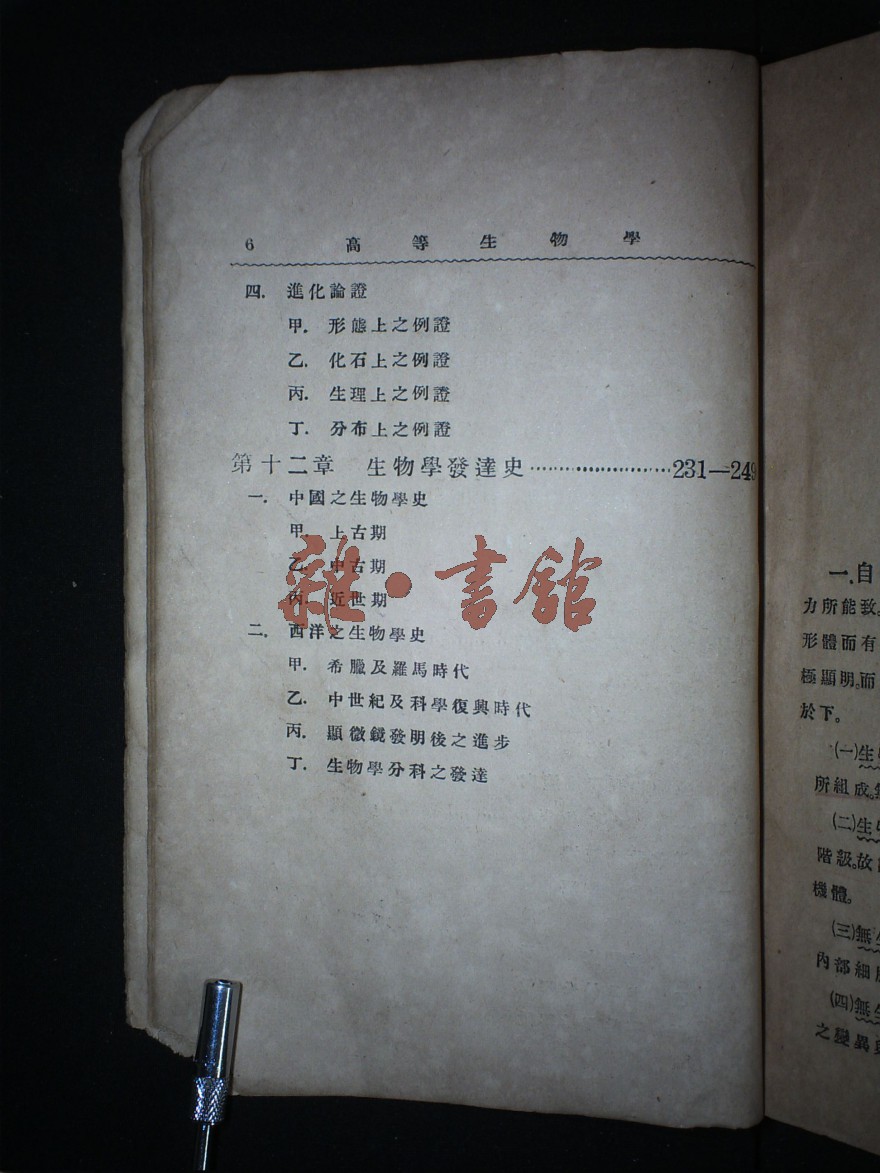 6 高等生物學
四. 進化論證
甲. 形態上之例證
乙. 化石上之例證
丙. 生理上之例證
丁. 分布上之例證
第十二章 生物學發達史……………………231—249
一. 中國之生物學史
甲. 上古期
乙. 中古期
丙. 近世期
二. 西洋之生物學史
甲. 希臘及羅馬時代
乙. 中世紀及科學復興時代
丙. 顯微鏡發明後之進步
丁. 生物學分科之發達
雜·書館
一.自
力所能致。
形體而有
極顯明。而
於下。
(一)生
所組成。
(二)生
階級。故
機體。
(三)無
內部細
(四)無生
之變異